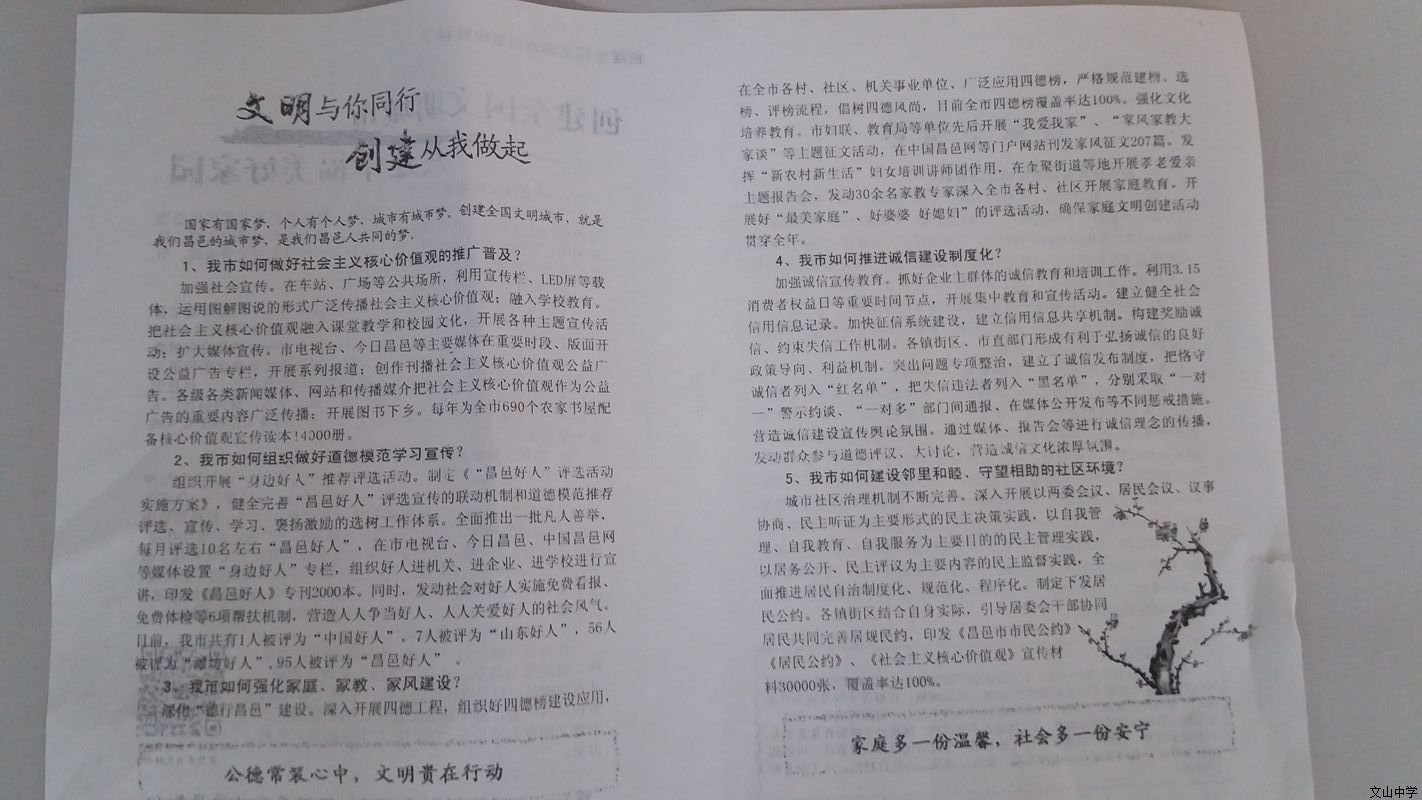 文明与你同行
创建从我做起
国家有国家梦，个人有个人梦，城市有城市梦，创建全国文明城市，就是
我们昌邑的城市梦，是我们昌邑人共同的梦。
1、我市如何做好社会主义核心价值观的推广普及？
加强社会宣传。在车站、广场等公共场所，利用宣传栏、LED屏等载
体，运用图解图说的形式广泛传播社会主义核心价值观；融入学校教育。
把社会主义核心价值观融入课堂教学和校园文化，开展各种主题宣传活
动；扩大媒体宣传。市电视台、今日昌邑等主要媒体在重要时段、版面开
设公益广告专栏，开展系列报道；创作刊播社会主义核心价值观公益广
告。各级各类新闻媒体、网站和传播媒介把社会主义核心价值观作为公益
广告的重要内容广泛传播；开展图书下乡。每年为全市690个农家书屋配
备核心价值观宣传读本14000册。
2、我市如何组织做好道德模范学习宣传？
组织开展“身边好人”推荐评选活动。制定《“昌邑好人”评选活动
实施方案》，健全完善“昌邑好人”评选宣传的联动机制和道德模范推荐
评选、宣传、学习、褒扬激励的选树工作体系。全面推出一批凡人善举，
每月评选10名左右“昌邑好人”，在市电视台、今日昌邑、中国昌邑网
等媒体设置“身边好人”专栏，组织好人进机关、进企业、进学校进行宣
讲，印发《昌邑好人》专刊2000本。同时，发动社会对好人实施免费看报、
免费体检等6项帮扶机制，营造人人争当好人、人人关爱好人的社会风气。
目前，我市共有1人被评为“中国好人”，7人被评为“山东好人”，56人
被评为“潍坊好人”,95人被评为“昌邑好人”。
3、我市如何强化家庭、家教、家风建设？
深化“德行昌邑”建设。深入开展四德工程，组织好四德榜建设应用，
公德常装心中，文明贵在行动
在全市各村、社区、机关事业单位、广泛应用四德榜，严格规范建榜、选
榜、评榜流程，倡树四德风尚，目前全市四德榜覆盖率达100%。强化文化
培养教育。市妇联、教育局等单位先后开展“我爱我家”、“家风家教大
家谈”等主题征文活动，在中国昌邑网等门户网站刊发家风征文207篇。发
挥“新农村新生活”妇女培训讲师团作用，在奎聚街道等地开展孝老爱亲
主题报告会，发动30余名家教专家深入全市各村、社区开展家庭教育。开
展好“最美家庭”、好婆婆 好媳妇”的评选活动，确保家庭文明创建活动
贯穿全年。
4、我市如何推进诚信建设制度化？
加强诚信宣传教育。抓好企业主群体的诚信教育和培训工作。利用3.15
消费者权益日等重要时间节点，开展集中教育和宣传活动。建立健全社会
信用信息记录。加快征信系统建设，建立信用信息共享机制。构建奖励诚
信、约束失信工作机制。各镇街区、市直部门形成有利于弘扬诚信的良好
政策导向、利益机制。突出问题专项整治，建立了诚信发布制度，把恪守
诚信者列入“红名单”，把失信违法者列入“黑名单”，分别采取“一对
一”警示约谈、“一对多”部门间通报、在媒体公开发布等不同惩戒措施。
营造诚信建设宣传舆论氛围。通过媒体、报告会等进行诚信理念的传播，
发动群众参与道德评议、大讨论，营造诚信文化浓厚氛围。
5、我市如何建设邻里和睦、守望相助的社区环境？
城市社区治理机制不断完善。深入开展以两委会议、居民会议、议事
协商、民主听证为主要形式的民主决策实践，以自我管
理、自我教育、自我服务为主要目的的民主管理实践，
以居务公开、民主评议为主要内容的民主监督实践，全
面推进居民自治制度化、规范化、程序化。制定下发居
民公约。各镇街区结合自身实际，引导居委会干部协同
居民共同完善居规民约，印发《昌邑市市民公约》
《居民公约》、《社会主义核心价值观》宣传材
料30000张，覆盖率达100%。
家庭多一份温馨，社会多一份安宁
文山中学